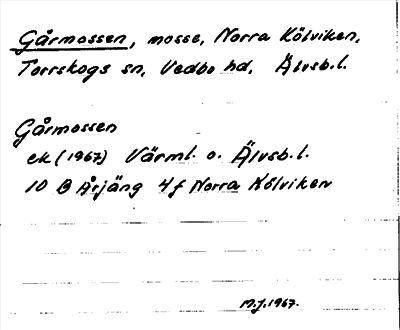 Gårmossen, mosse, Norra Kölviken,
Torrskogs sn, Vedbo hd, Älvsb. l.
Gårmossen
ek (1967) Värml. o. Älvsb. l.
10 B Årjäng 4f Norra Kölviken
M.J. 1967.